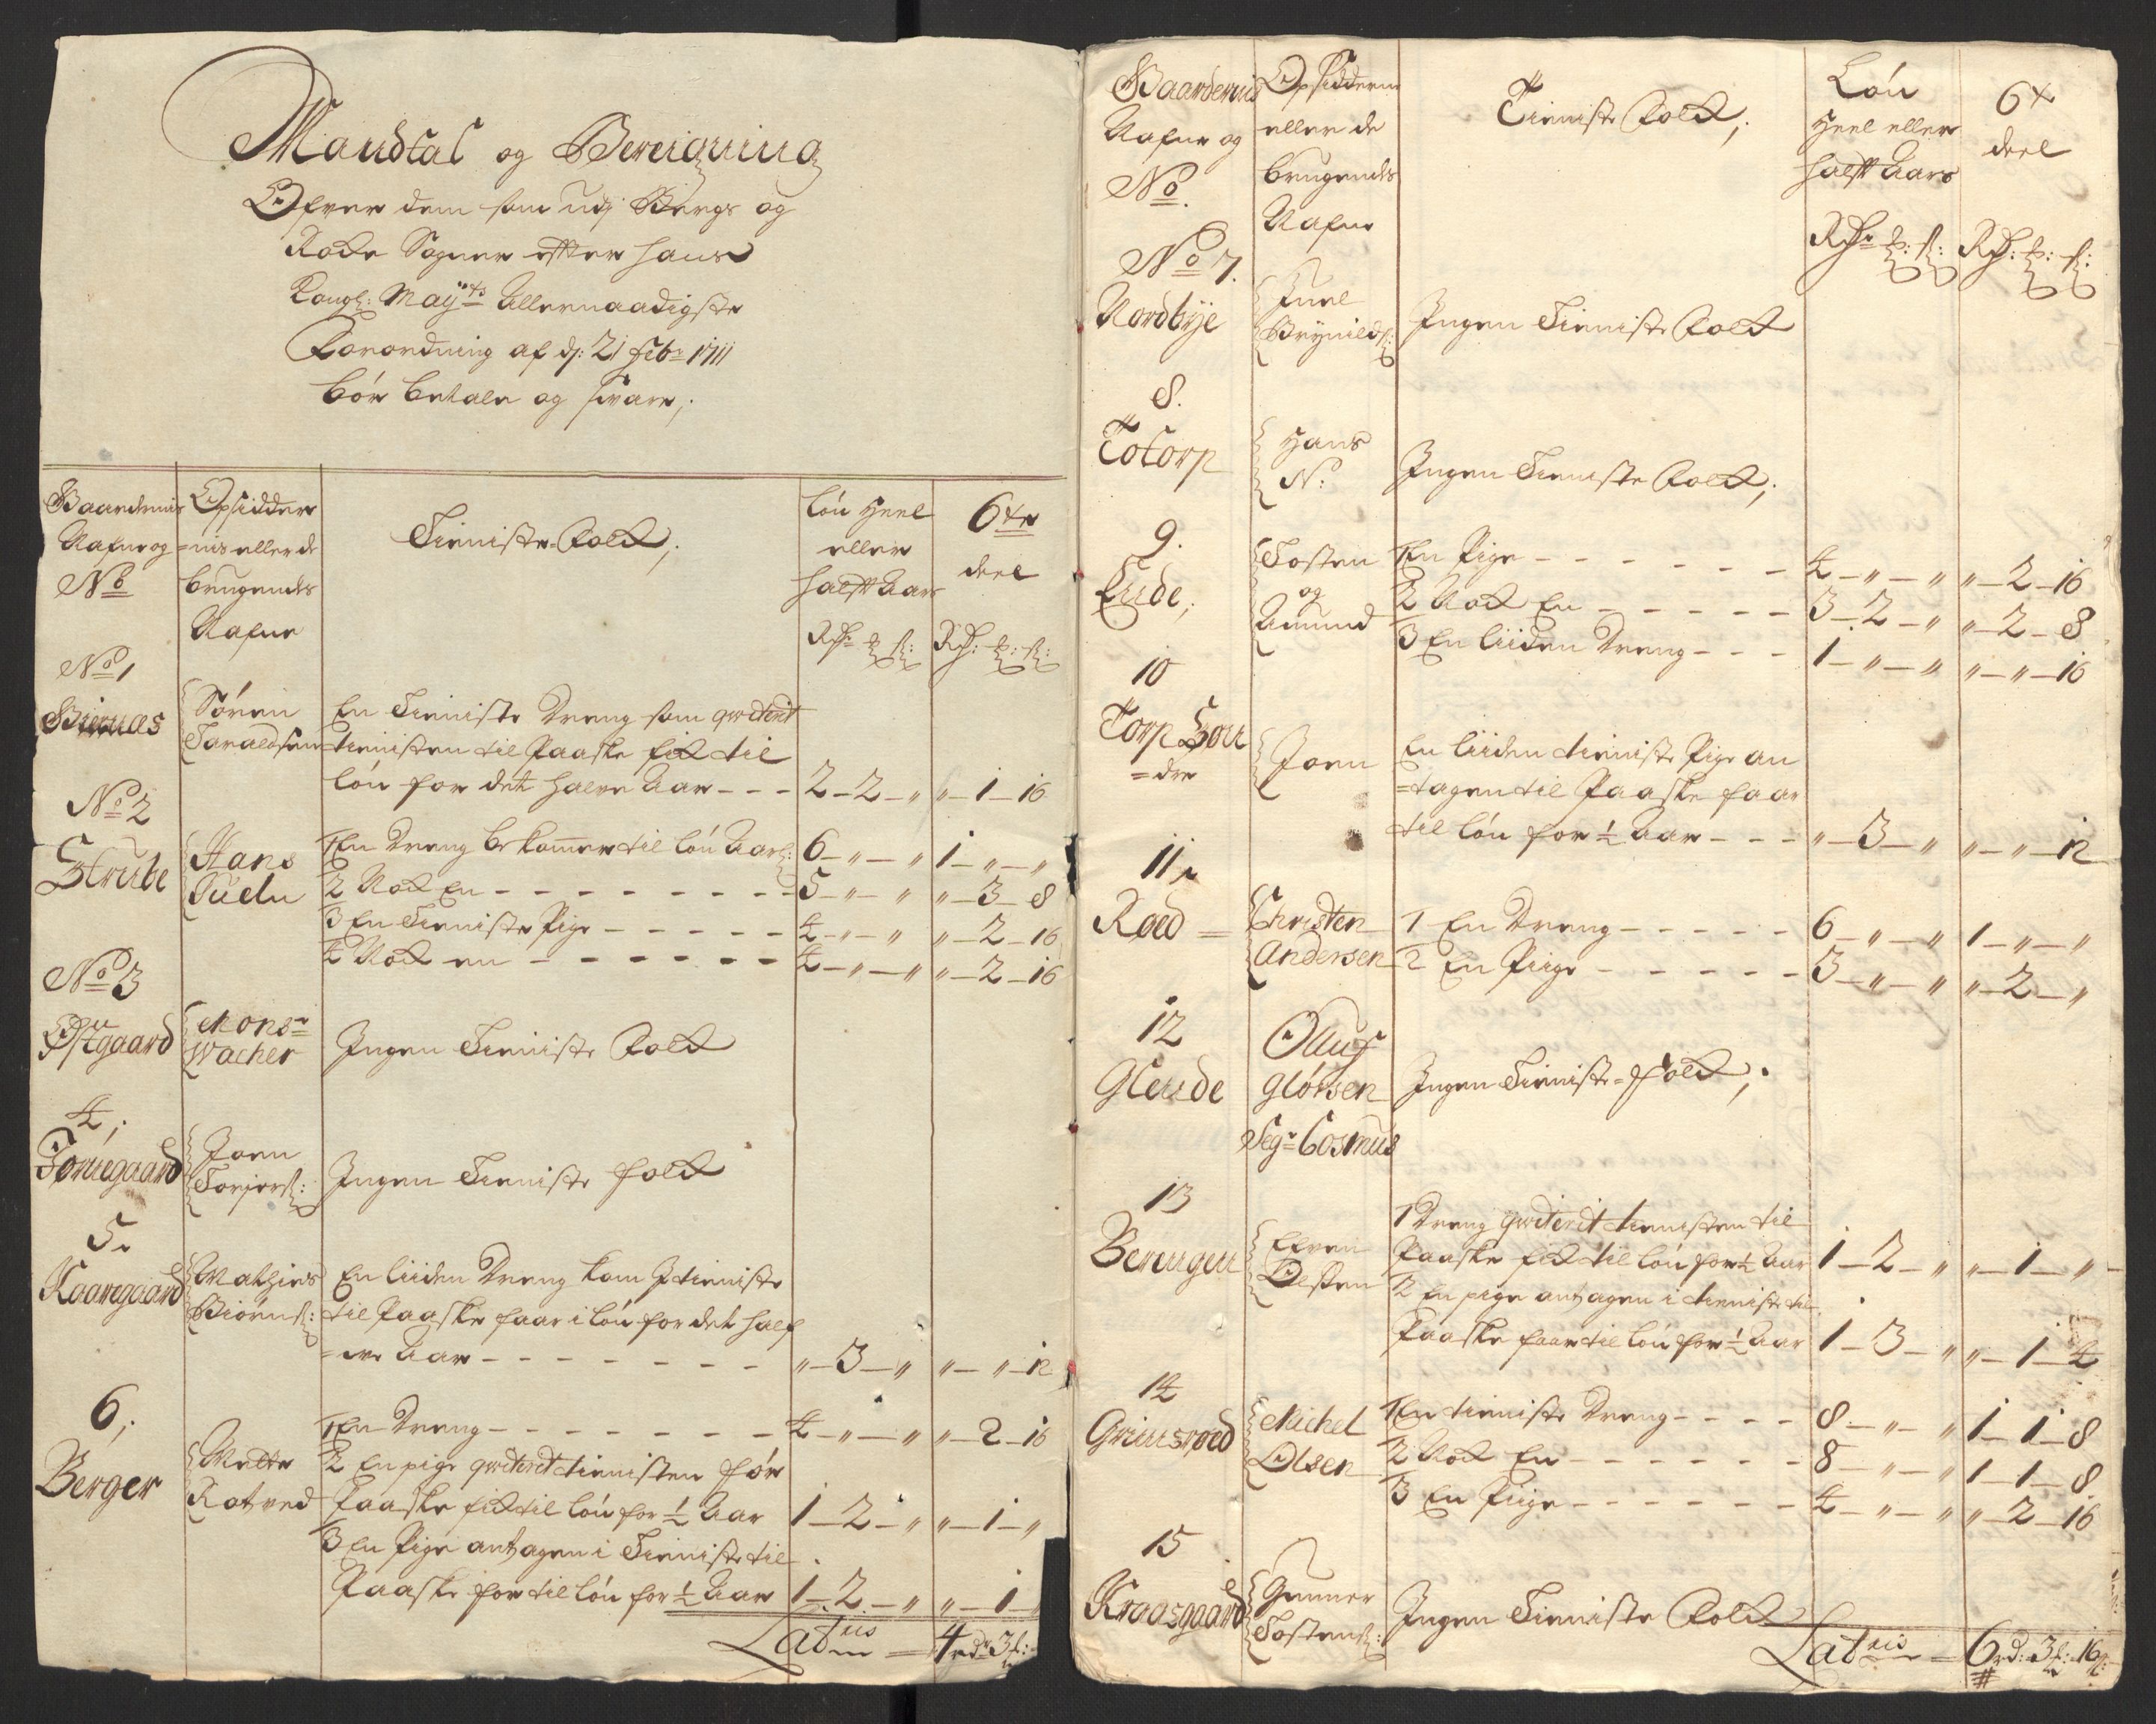 Mandtal og Bereigning
Ofver dem som udj Bergs og
Rocke Sogner effter hans
Kongl: Mayts Allernaadigste
Forordning af dj: 21 Febr 1711
bör betale og svare;
Gaardernis Nafne og No
Opsiddernis eller de brugendes Nafne
Tieniste-Folck;
Lön Heel eller halft Aars
6te deel
Rdr ƶ: s:
Rd: ƶ: s:
No 1
Biernæs
Sören Taraldsen
En Tieniste Dreng som qviterit
tienisten til Paaske fik til
lön for det halve Aar - - - 2 - 2 - " " - 1 - 16
No 2
Strube
Hans Jueln
1 En Dreng bekommer til lön Aarl: 6 - " - " 1 - " - "
2 Nock En - - - 5 - " - " " - 3 - 8
3 En Tieniste Pige - - - 4 - " - " " - 2 - 16
4 Nock en - - - 4 - " - " " - 2 - 16
No 3
Østgaard
Monsr Wacher
Ingen Tieniste Folck
4;
Tornegaard
Joen Torjers:
Ingen Tieniste folck
5.
Kaaregaard
Mathies Biörns:
En liiden Dreng kom I tieniste
til Paaske faar i lön for det half
=ve Aar - - - " - 3 - " " - " - 12
6;
Berger
Mette Rotved
1 En Dreng - - - 4 - " - " " - 2 - 16
2 En pige qviterit tienisten för
Paaske fik til lön for ½ Aar 1 - 2 - " " - 1 - "
3 En Pige antagen i Tieniste til
Paaske for til lön for ½ Aar 1 - 2 - " " - 1 -
Latus = 4 rdr 3 ƶ:
Gaardernis Nafne og No.
Opsidderne eller de brugendes Nafne
Tieniste Folck;
Lön Heel eller halft Aars
6te deel
Rdr ƶ: s:
Rd: ƶ: s:
No 7.
Nordbye
Juel Brynilds:
Ingen Tieniste Folck
8.
Totorp
Hans N:
Ingen Tieniste Folck;
9.
Eude;
Tosten og Amund
1 En Pige - - - 4 - " - " " - 2 - 16
2 Nock En - - - 3 - 2 - " " - 2 - 8
3 En liiden Dreng - - - 1 - " - " " - " - 16
10
Torp Sön
=dre
Joen
En liiden tieniste Pige an
=tagen til Paaske faar
til lön for ½ Aar - - - " - 3 - " " - " - 12
11.
Roed =
Christen Andersen
1 En Dreng - - - 6 - " - " 1 - " - "
2 En Piige - - - 3 - " - " " - 2 - "
12
Glende
Oluf Glörsen
Segr Cosmus
Ingen Tieniste-folck;
13
Berengen
Efven Olsten
1 Dreng qviterit tienisten til
Paaske fik til lön for ½ Aar 1 - 2 - " " - 1 - "
2 En pige antagen i tieniste til
Paaske faar til lön for ½ Aar 1 - 3 - " " - 1 - 4
14
Grimsroed
Michel Olsen
1 En tieniste Dreng - - - 8 - " - " 1 - 1 - 8
2 Nock En - - - 8 - " - " 1 - 1 - 8
3 En Piige - - - 4 - " - " " - 2 - 16
15
Kraasgaard
Gunner Tostens:
Ingen Tieniste Folck
Latus = 6 rd: 3 ƶ: 16 s: